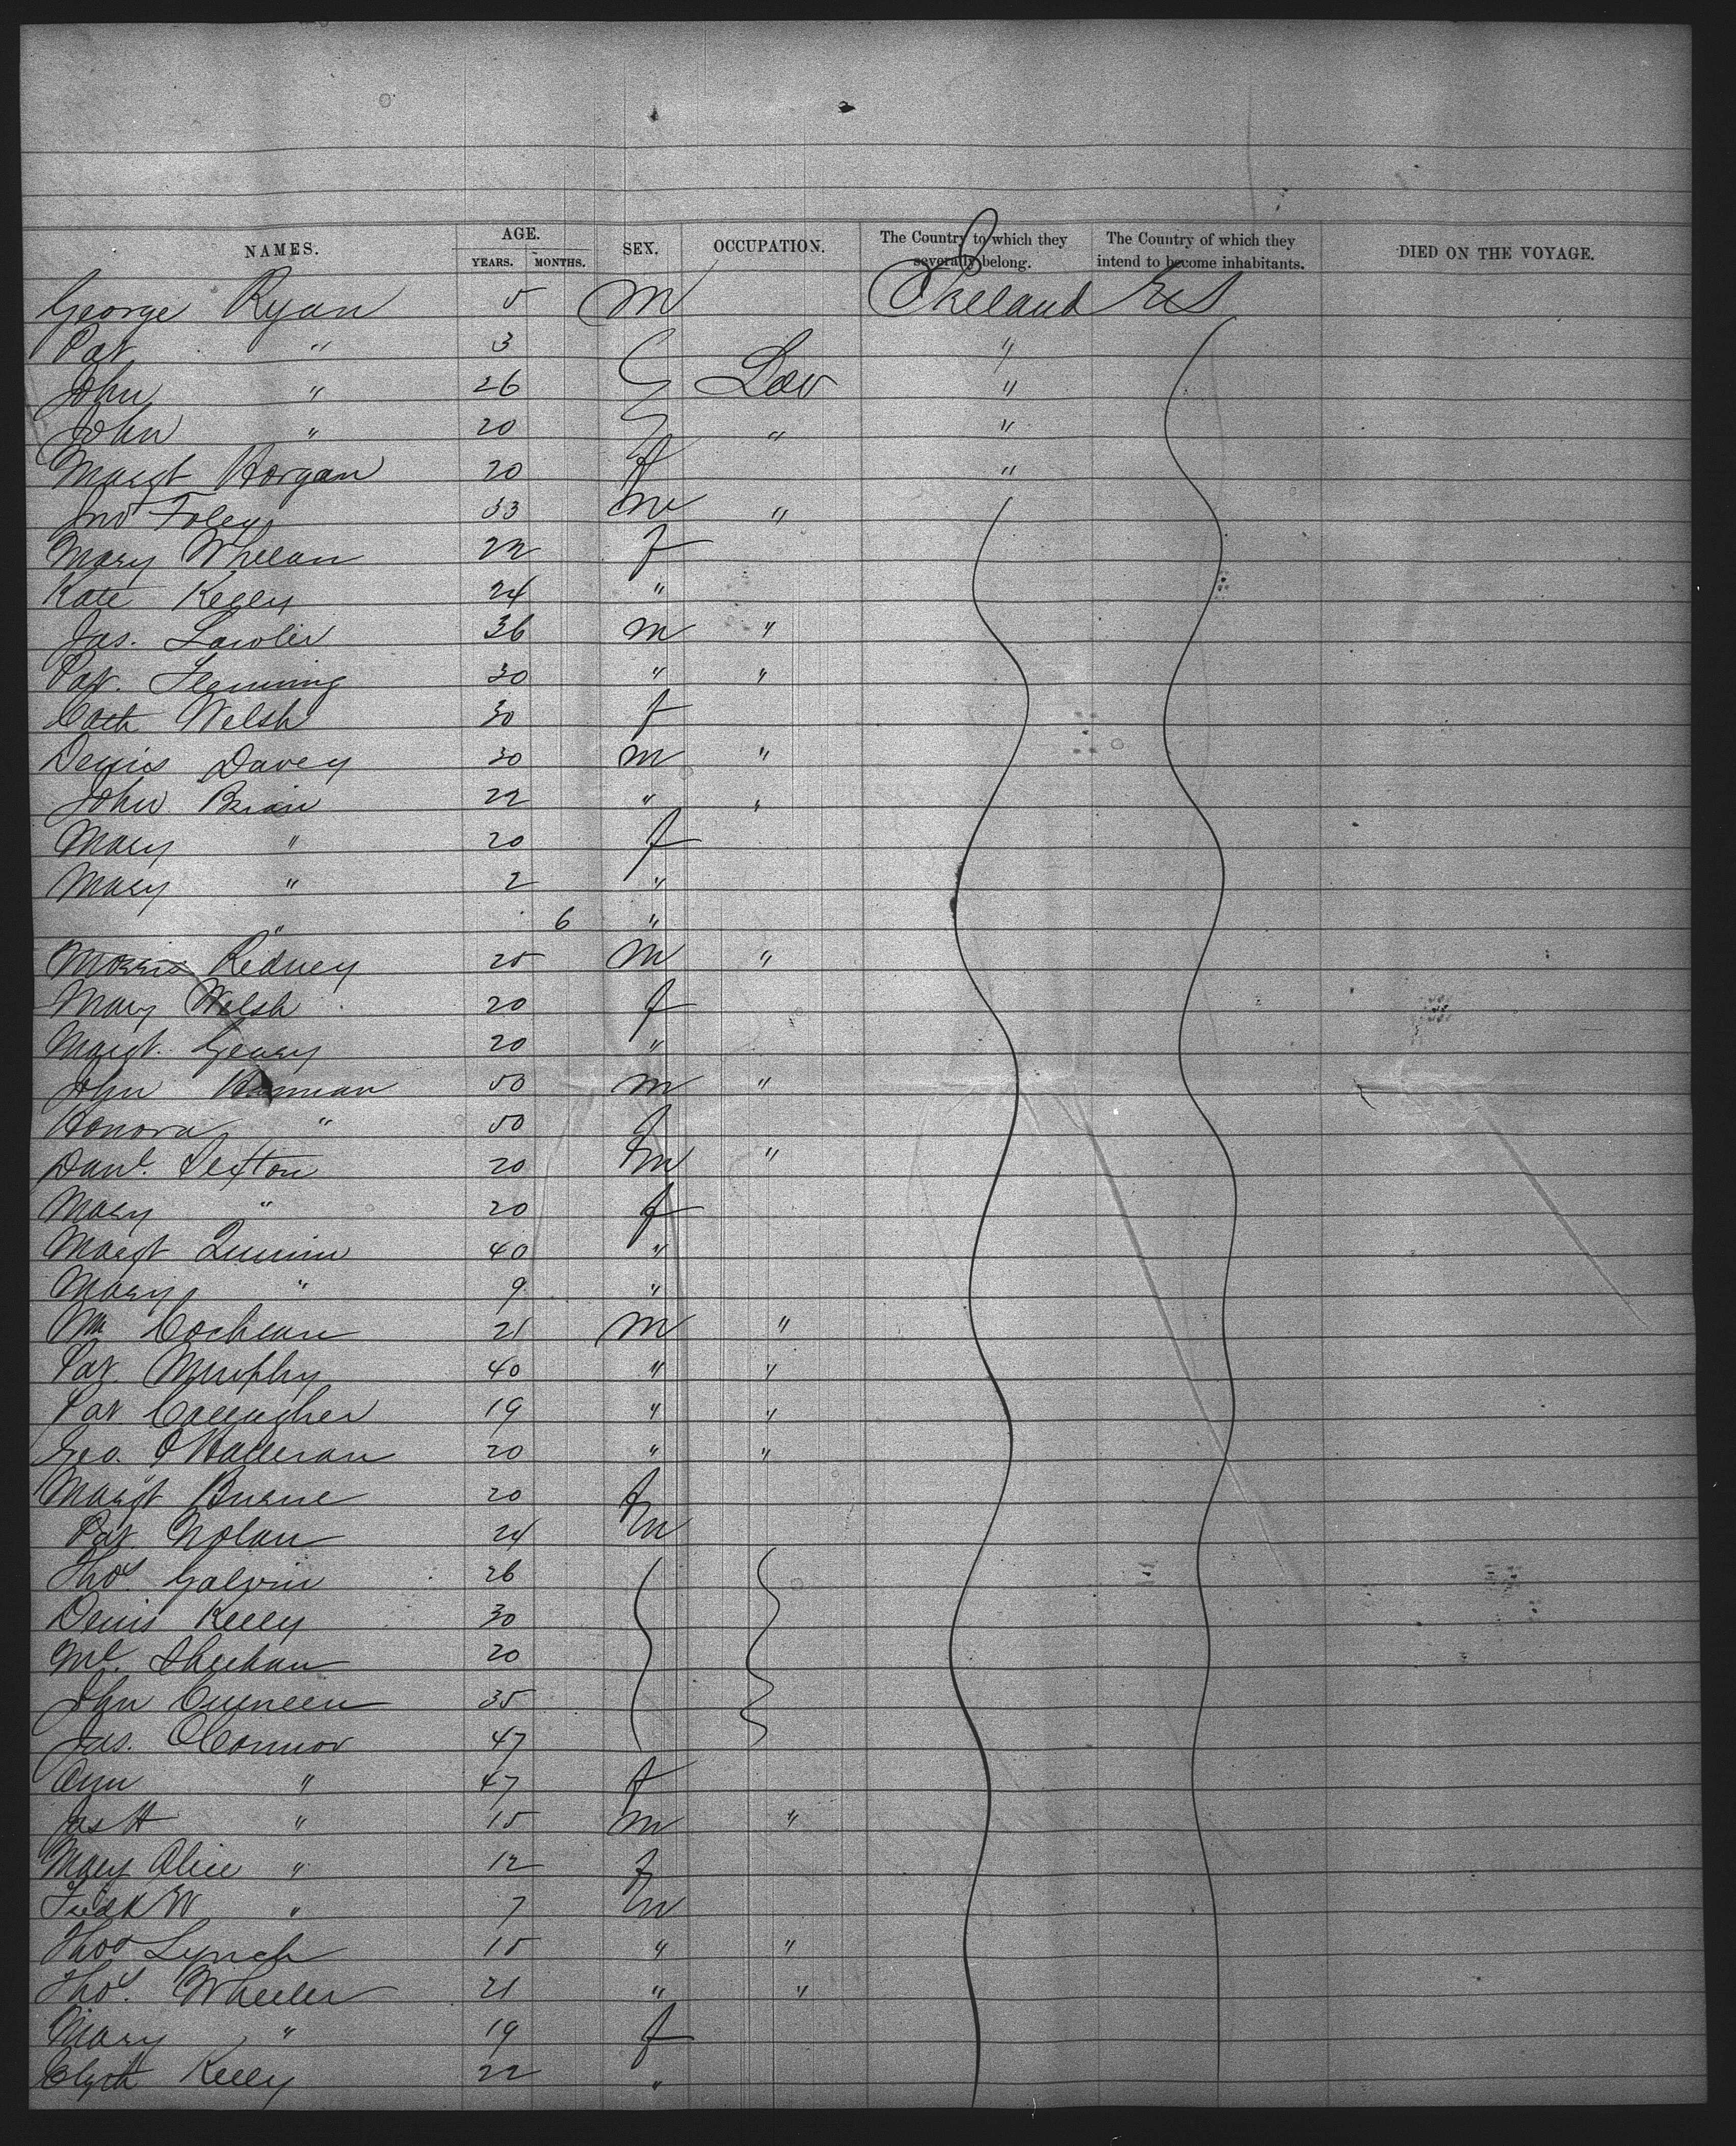 NAMES. AGE. YEARS. MONTHS. SEX. OCCUPATION. The Country to which they severally belong. The Country of which they intend to become inhabitants. DIED ON THE VOYAGE.
George Ryan 5 M Ireland US
Pat " 3 "
John " 26 Lab "
John " 20 " "
Margt Horgan 20 f "
Jno Foley 33 m "
Mary Whelan 22 f
Kate Kelly 24 "
Jas. Lawler 36 m "
Pat. Fleming 30 " "
Cath Welsh 30 f
Denis Davey 30 m "
John Brien 22 " "
Mary " 20 f
Mary " 2 "
" 6 "
Morris Kidney 25 m "
Mary Welsh 20 f
Margt. Geary 20 "
John Hannan 50 m "
Honora " 50 f
Danl. Sexton 20 m "
Mary " 20 f
Margt Quinn 40 "
Mary " 9 "
Wm Cochran 21 m "
Pat. Murphy 40 " "
Pat Gallagher 19 " "
Geo. O'Halleran 20 " "
Margt Burne 20 f
Pat. Nolan 24 m
Thos. Galvin 26
Denis Kelly 30
Ml. Sheehan 20
John 35
Jas. OConnor 47
Ann " 47 f
Jas H " 15 m "
Mary Alice " 12 f
Fredk W " 7 m
Thos Lynch 15 " "
Thos. Wheeler 21 " "
Mary " 19 f
Elizth Kelly 22 "